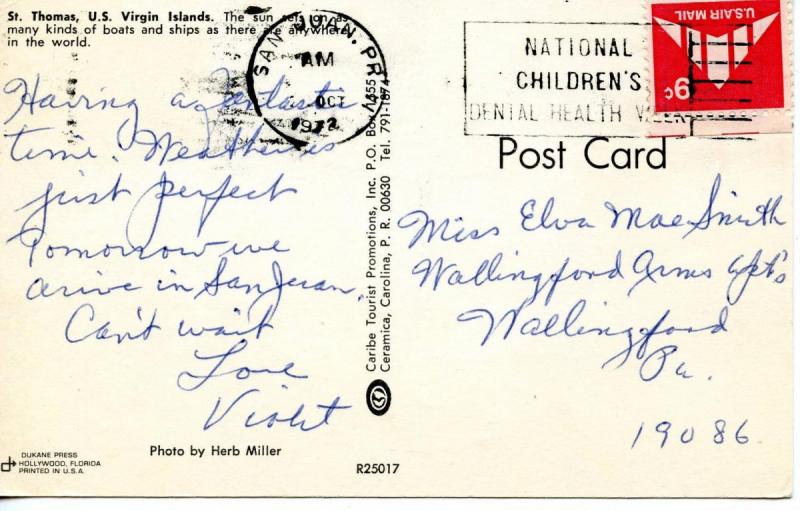 St. Thomas, U.S. Virgin Islands. The sun sets on as
many kinds of boats and ships as there are anywhere
in the world.
SAN JUAN, PR
AM
OCT
1972
NATIONAL
CHILDREN'S
DENTAL HEALTH WEEK
U.S. AIR MAIL
9c
Post Card
Having a fantastic
time. Weather is
just perfect
Tomorrow we
arive in San Juan,
Can't wait
Love
Violet
Caribe Tourist Promotions, Inc. P.O. Box 1455
Ceramica, Carolina, P. R. 00630 Tel. 791-1874
Miss Elva Mae Smith
Wallingford Arms Apt's
Wallingford
Pa.
19086
DUKANE PRESS
HOLLYWOOD, FLORIDA
PRINTED IN U.S.A.
Photo by Herb Miller
R25017